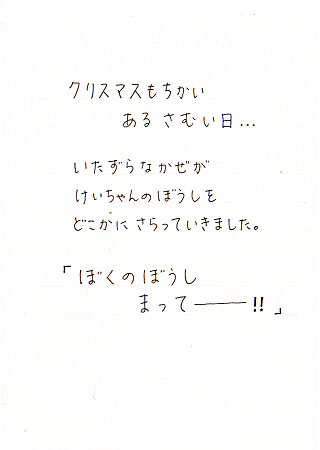 クリスマスもちかい
ある さむい日...
いたずらなかぜが
けいちゃんのぼうしを
どこかに さらっていきました。
「ぼくのぼうし
まって――!!」